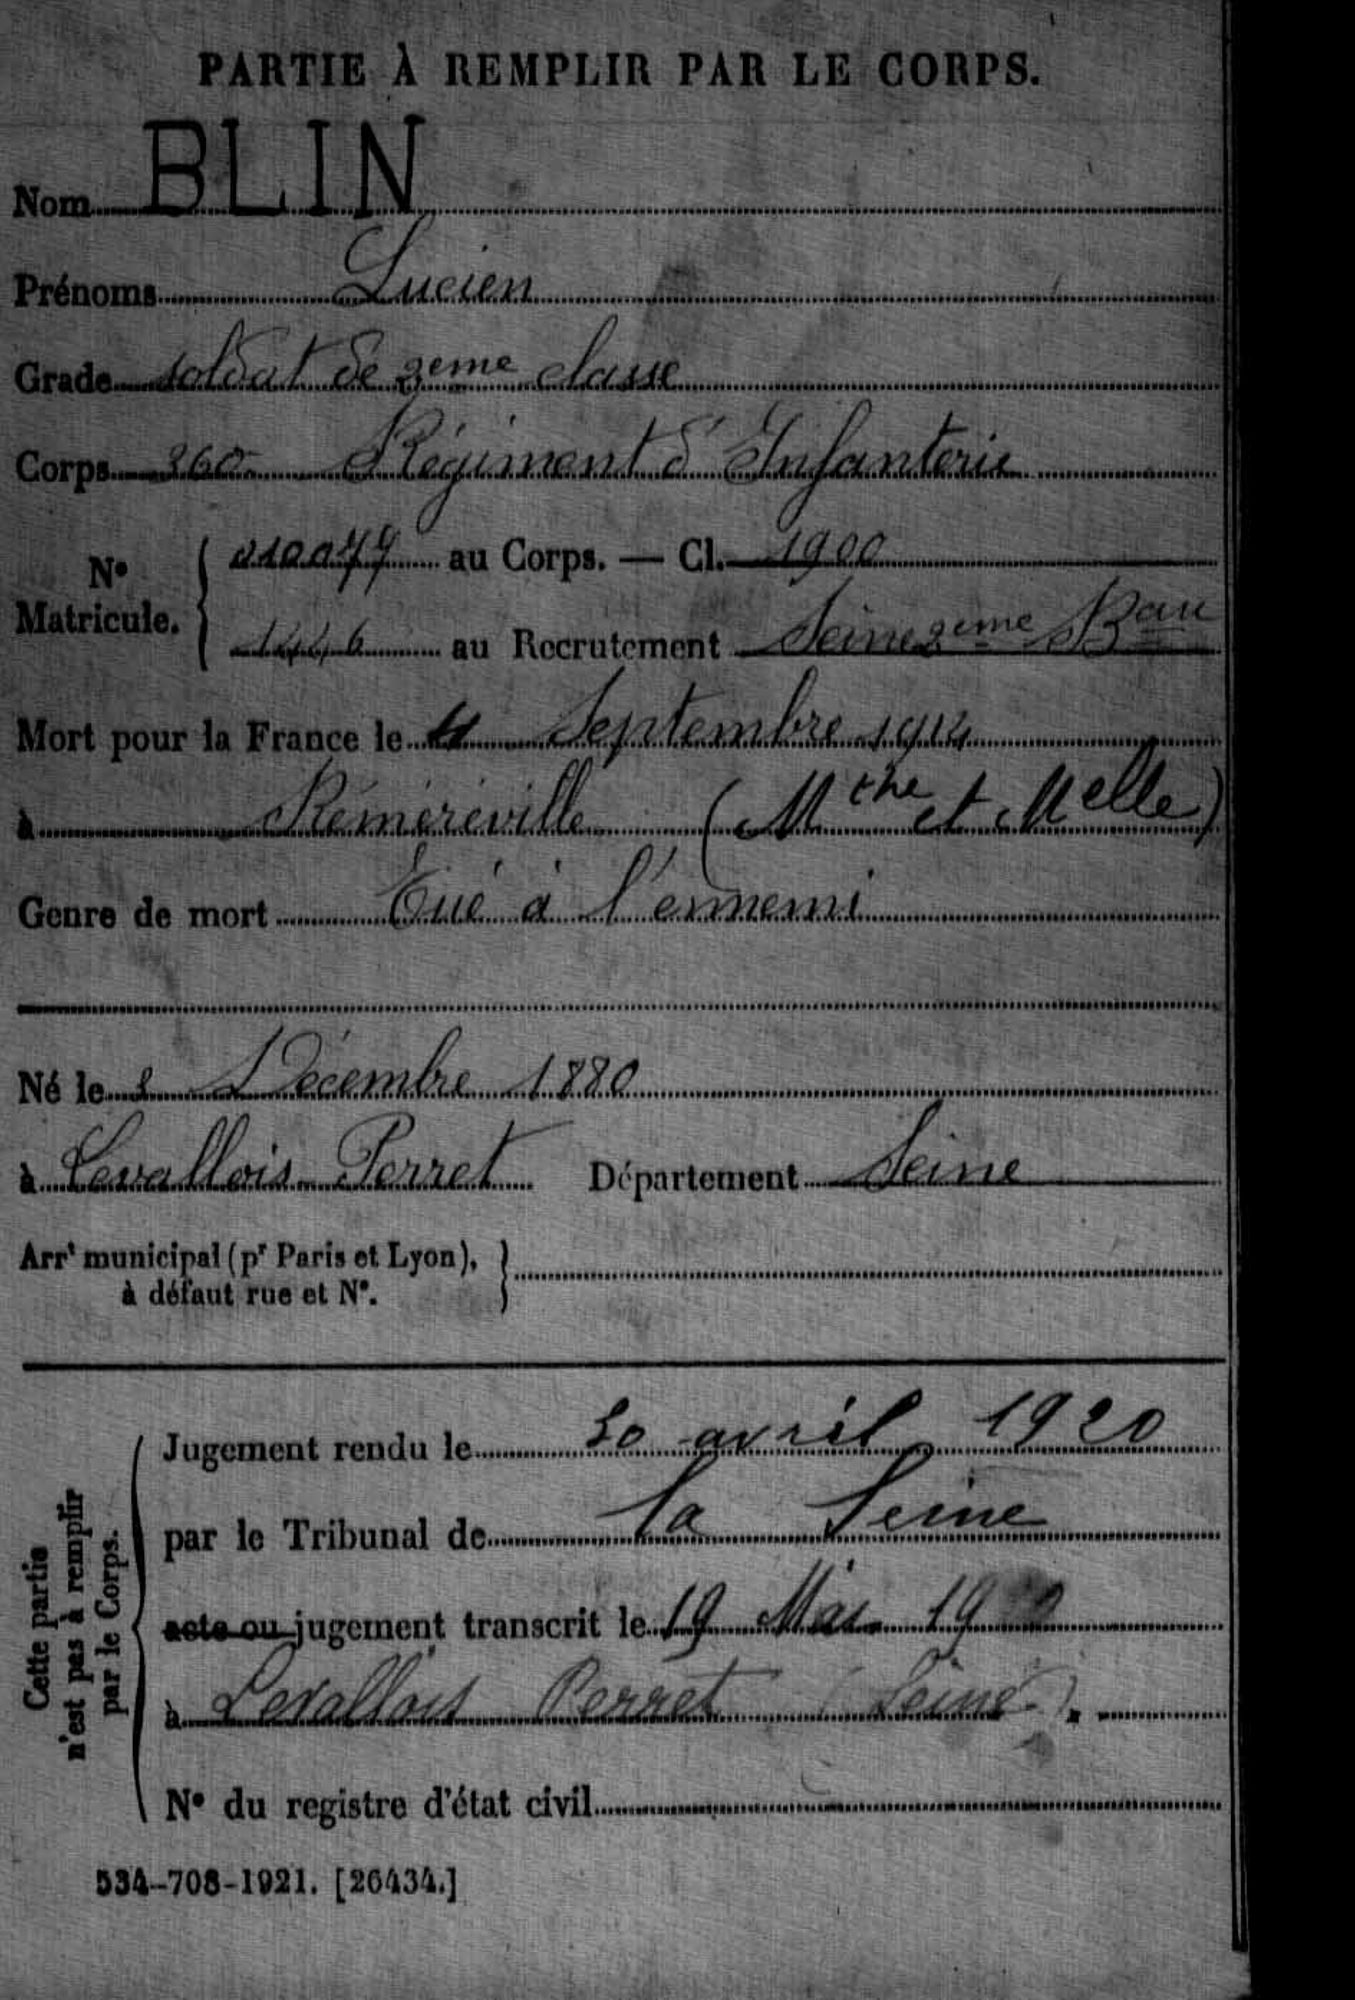 PARTIE À REMPLIR PAR LE CORPS.
Nom BLIN
Prénoms Lucien
Grade soldat de 2eme classe
Corps 260 Régiment d'Infanterie
No Matricule. { 010079 au Corps. — Cl. 1900
1446 au Recrutement Seine 2eme Bau
Mort pour la France le 4 Septembre 1914
à Réméréville (Mthe et Melle)
Genre de mort Tué à l'ennemi
Né le 2 Décembre 1880
à Levallois-Perret Département Seine
Arrt municipal (pr Paris et Lyon), à défaut rue et No. }
Cette partie n'est pas à remplir par le Corps.
Jugement rendu le 30 avril 1920
par le Tribunal de la Seine
acte ou jugement transcrit le 19 Mai 19
à Levallois Perret (Seine).
No du registre d'état civil
534-708-1921. [26434.]